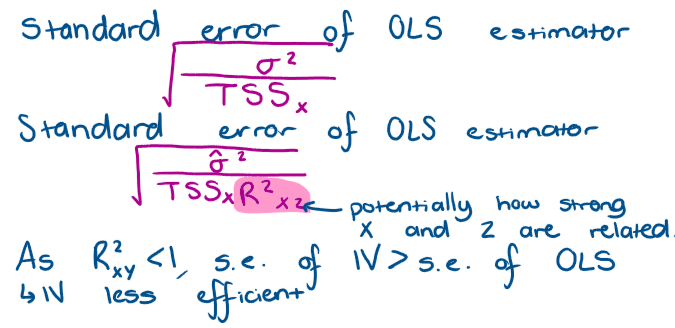 Standard error of OLS estimator
√(σ² / TSSₓ)
Standard error of OLS estimator
√(σ̂² / TSSₓR²ₓ₂)
potentially how strong
x and z are related.
As R²xy <1, s.e. of IV > s.e. of OLS
↳ IV less efficient